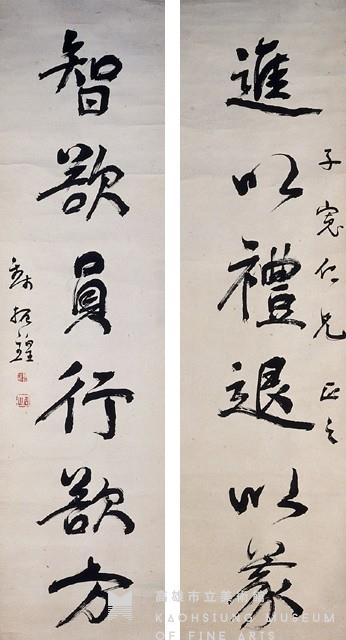 進以禮退以義
子寬仁兄 正之
智欲員行欲方
錢振鍠
高雄市立美術館
KAOHSIUNG MUSEUM
OF FINE ARTS